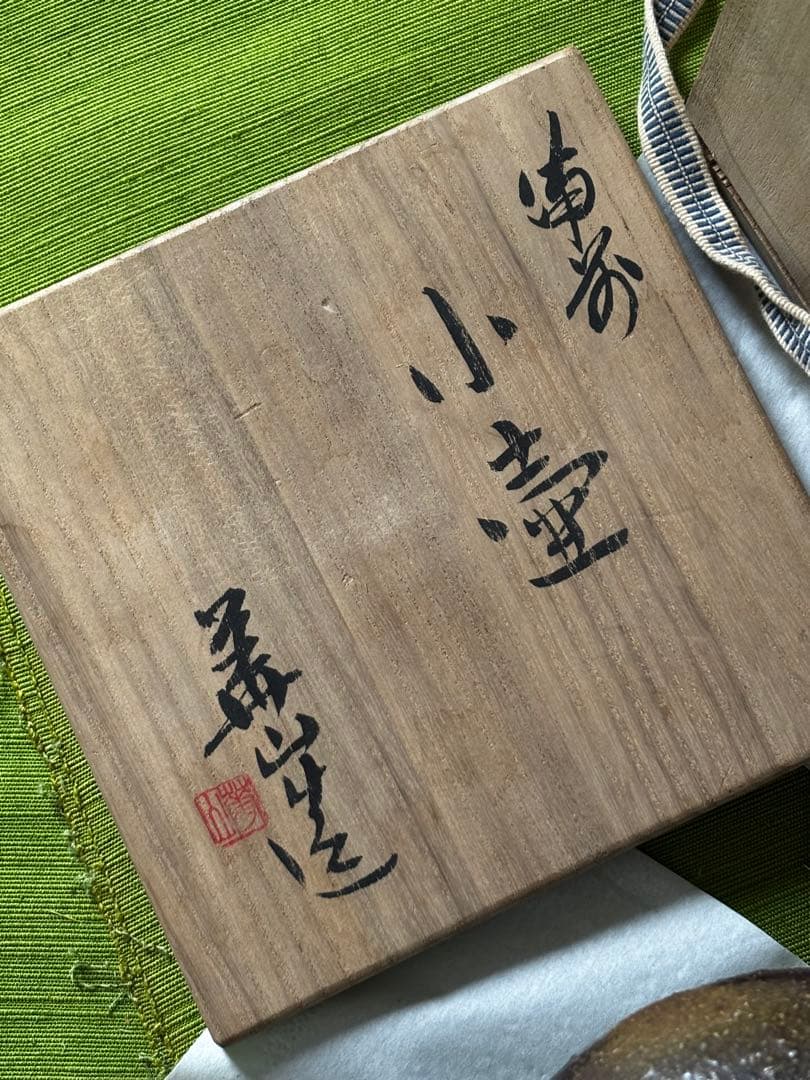 備前
小壷
華山造